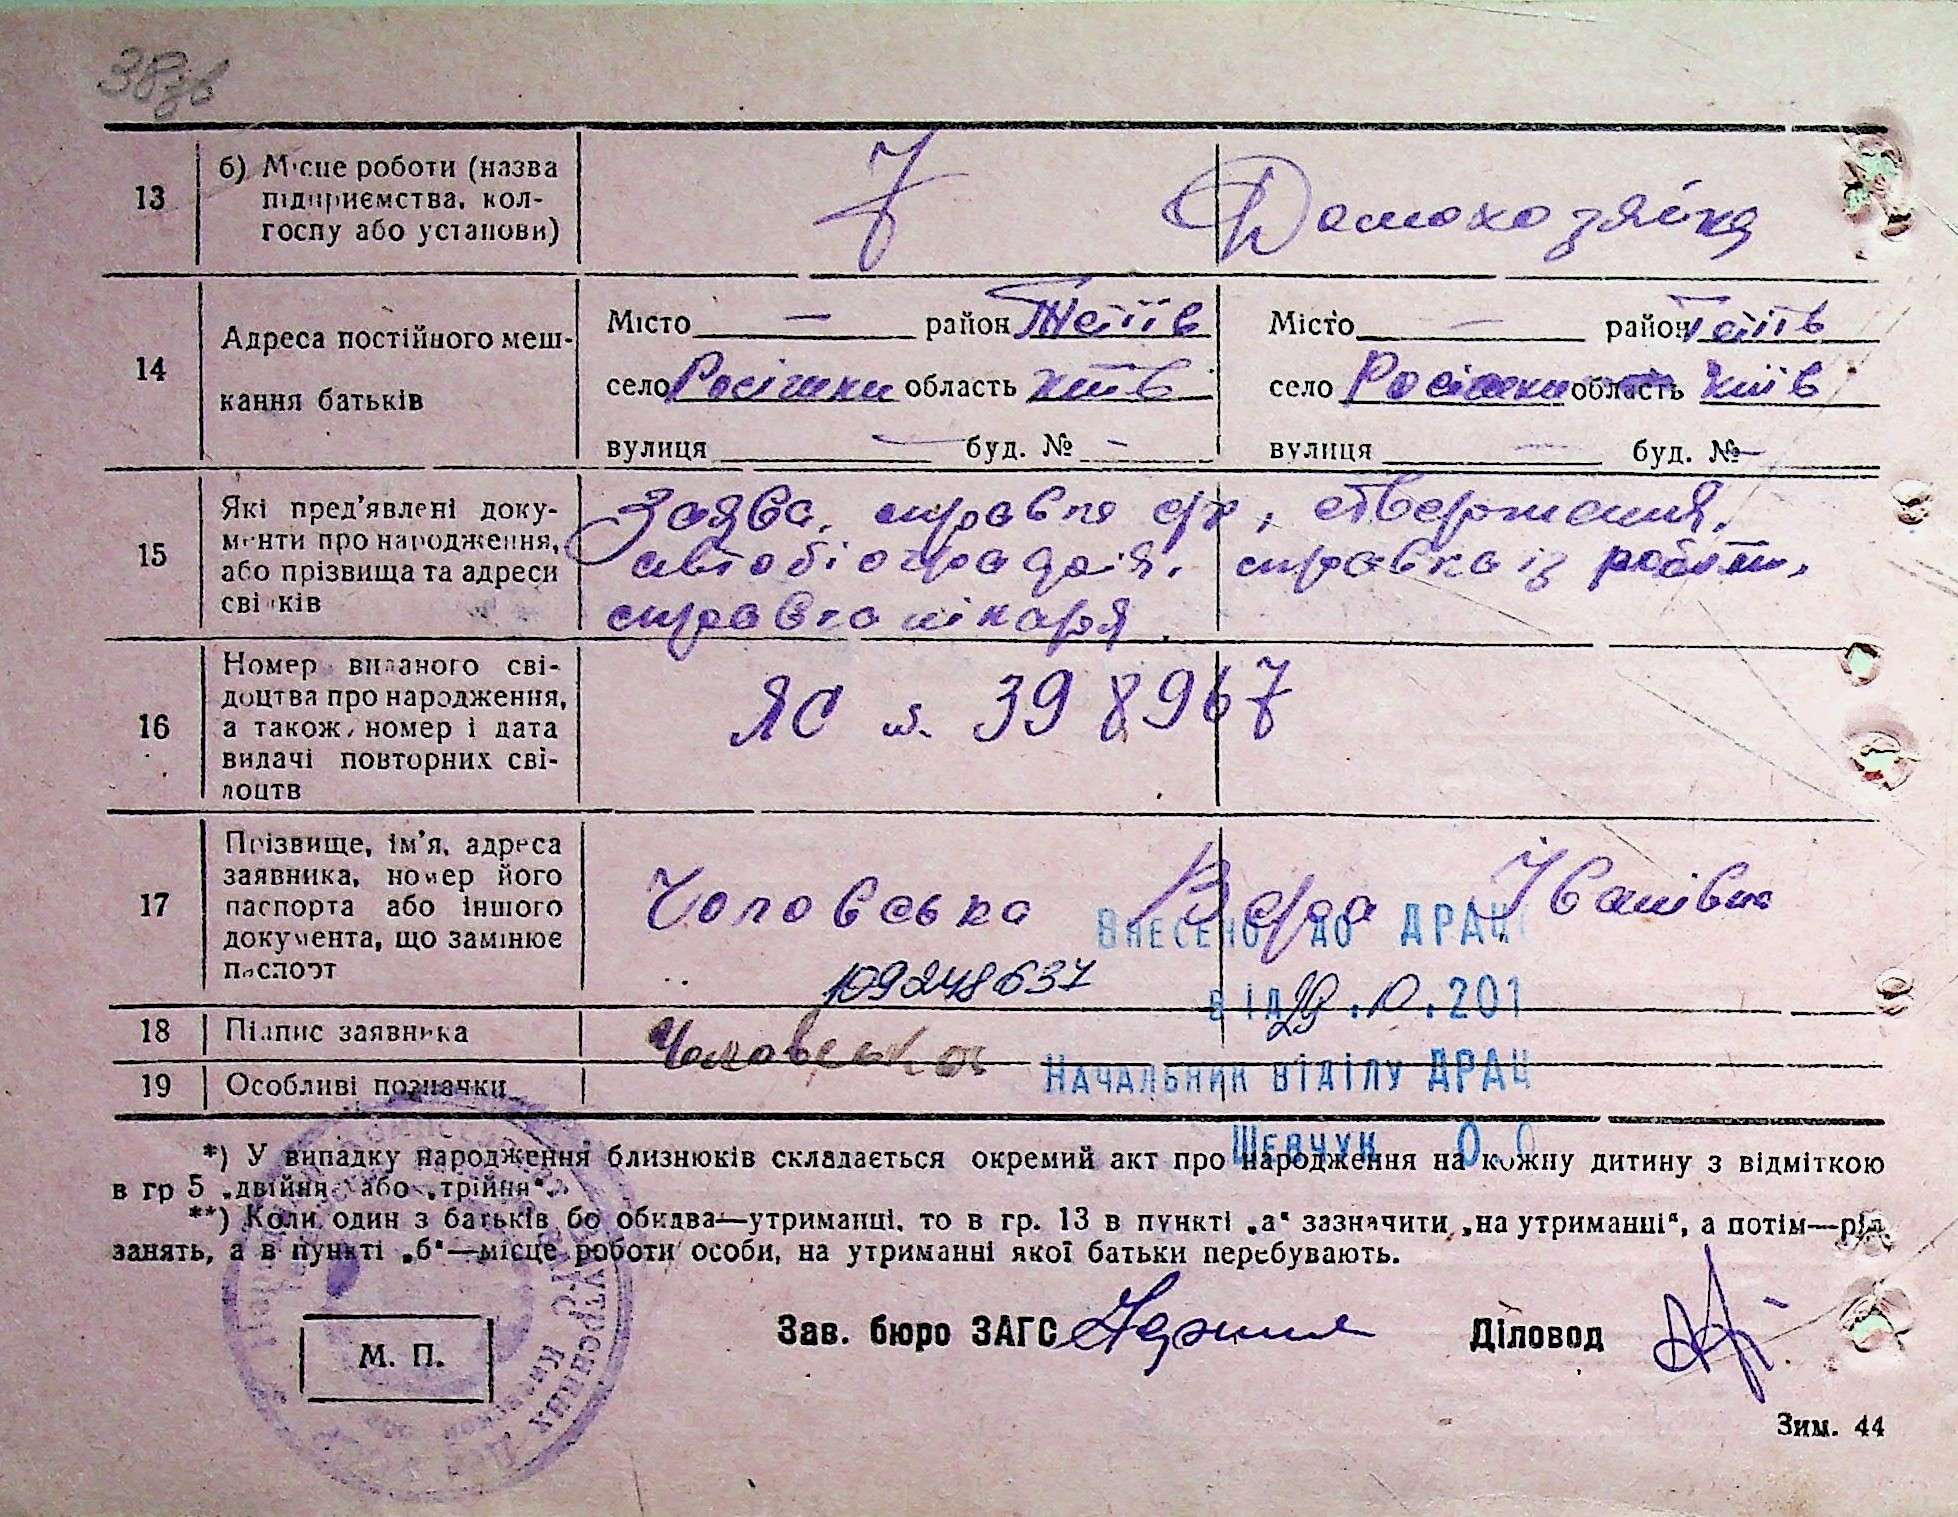 38зв
13 б) Місце роботи (назва підприємства, колгоспу або установи)
Домохозяйка
14 Адреса постійного мешкання батьків
Місто — район Тетіїв
село Росішки область Київ
вулиця — буд. № -
Місто — район Тетіїв
село Росішки область Київ
вулиця — буд. №—
15 Які пред'явлені документи про народження, або прізвища та адреси свідків
Заява, справка с/р, ствердження,
автобіографія, справка із роботи,
справка лікаря.
16 Номер виданого свідоцтва про народження, а також номер і дата видачі повторних свідоцтв
ЯС № 398967
17 Прізвище, ім'я, адреса заявника, номер його паспорта або іншого документа, що замінює паспорт
Чоловська Вера Іванівна
109248637
Внесено до ДРАЦ
від 29.10.201
18 Підпис заявника
Чоловська
Начальник відділу ДРАЦ
19 Особливі позначки
Шевчук О.О
*) У випадку народження близнюків складається окремий акт про народження на кожну дитину з відміткою
в гр 5 „двійня" або „трійня".
**) Коли один з батьків бо обидва—утриманці, то в гр. 13 в пункті „а" зазначити „на утриманні", а потім—рід
занять, а в пункті „б"—місце роботи особи, на утриманні якої батьки перебувають.
Зав. бюро ЗАГС
Діловод
М. П.
Зим. 44